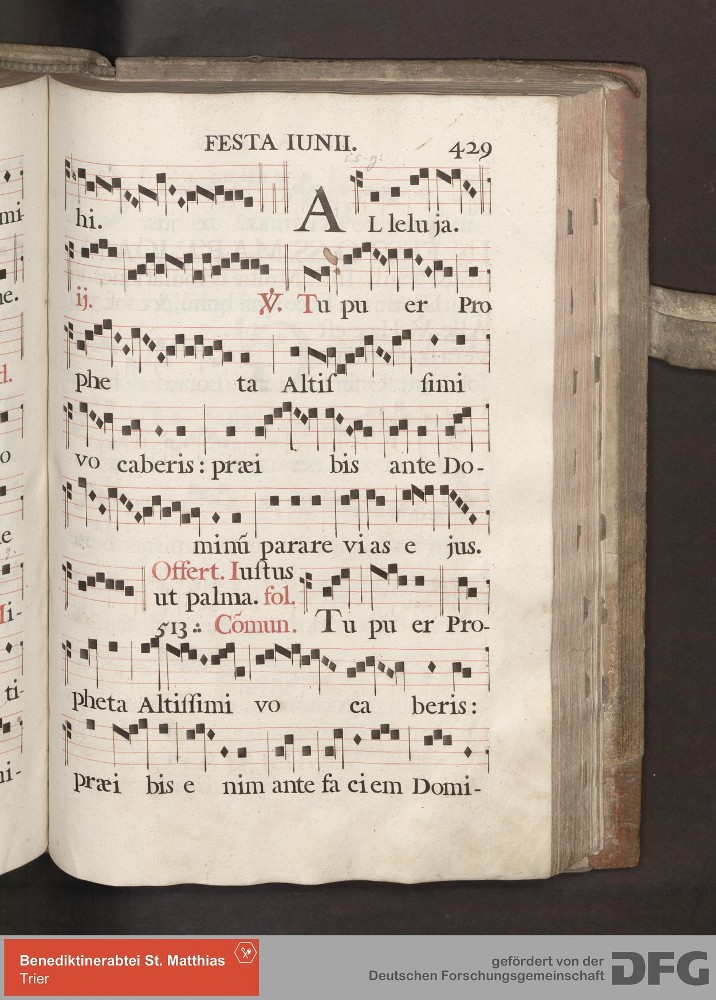 FESTA IUNII. 429
hi. ALleluja.
ij. ℣. Tu pu er Pro
phe ta Altiſ ſimi
vo caberis: præi bis ante Do-
minū parare vias e jus.
Offert. Iuſtus
ut palma. fol.
513 :. Cōmun. Tu pu er Pro-
pheta Altiſſimi vo ca beris:
præi bis e nim ante fa ciem Domi-
mi
ne.
d.
o
e
Mi-
ti-
ni-
Benediktinerabtei St. Matthias
Trier
gefördert von der
Deutschen Forschungsgemeinschaft DFG